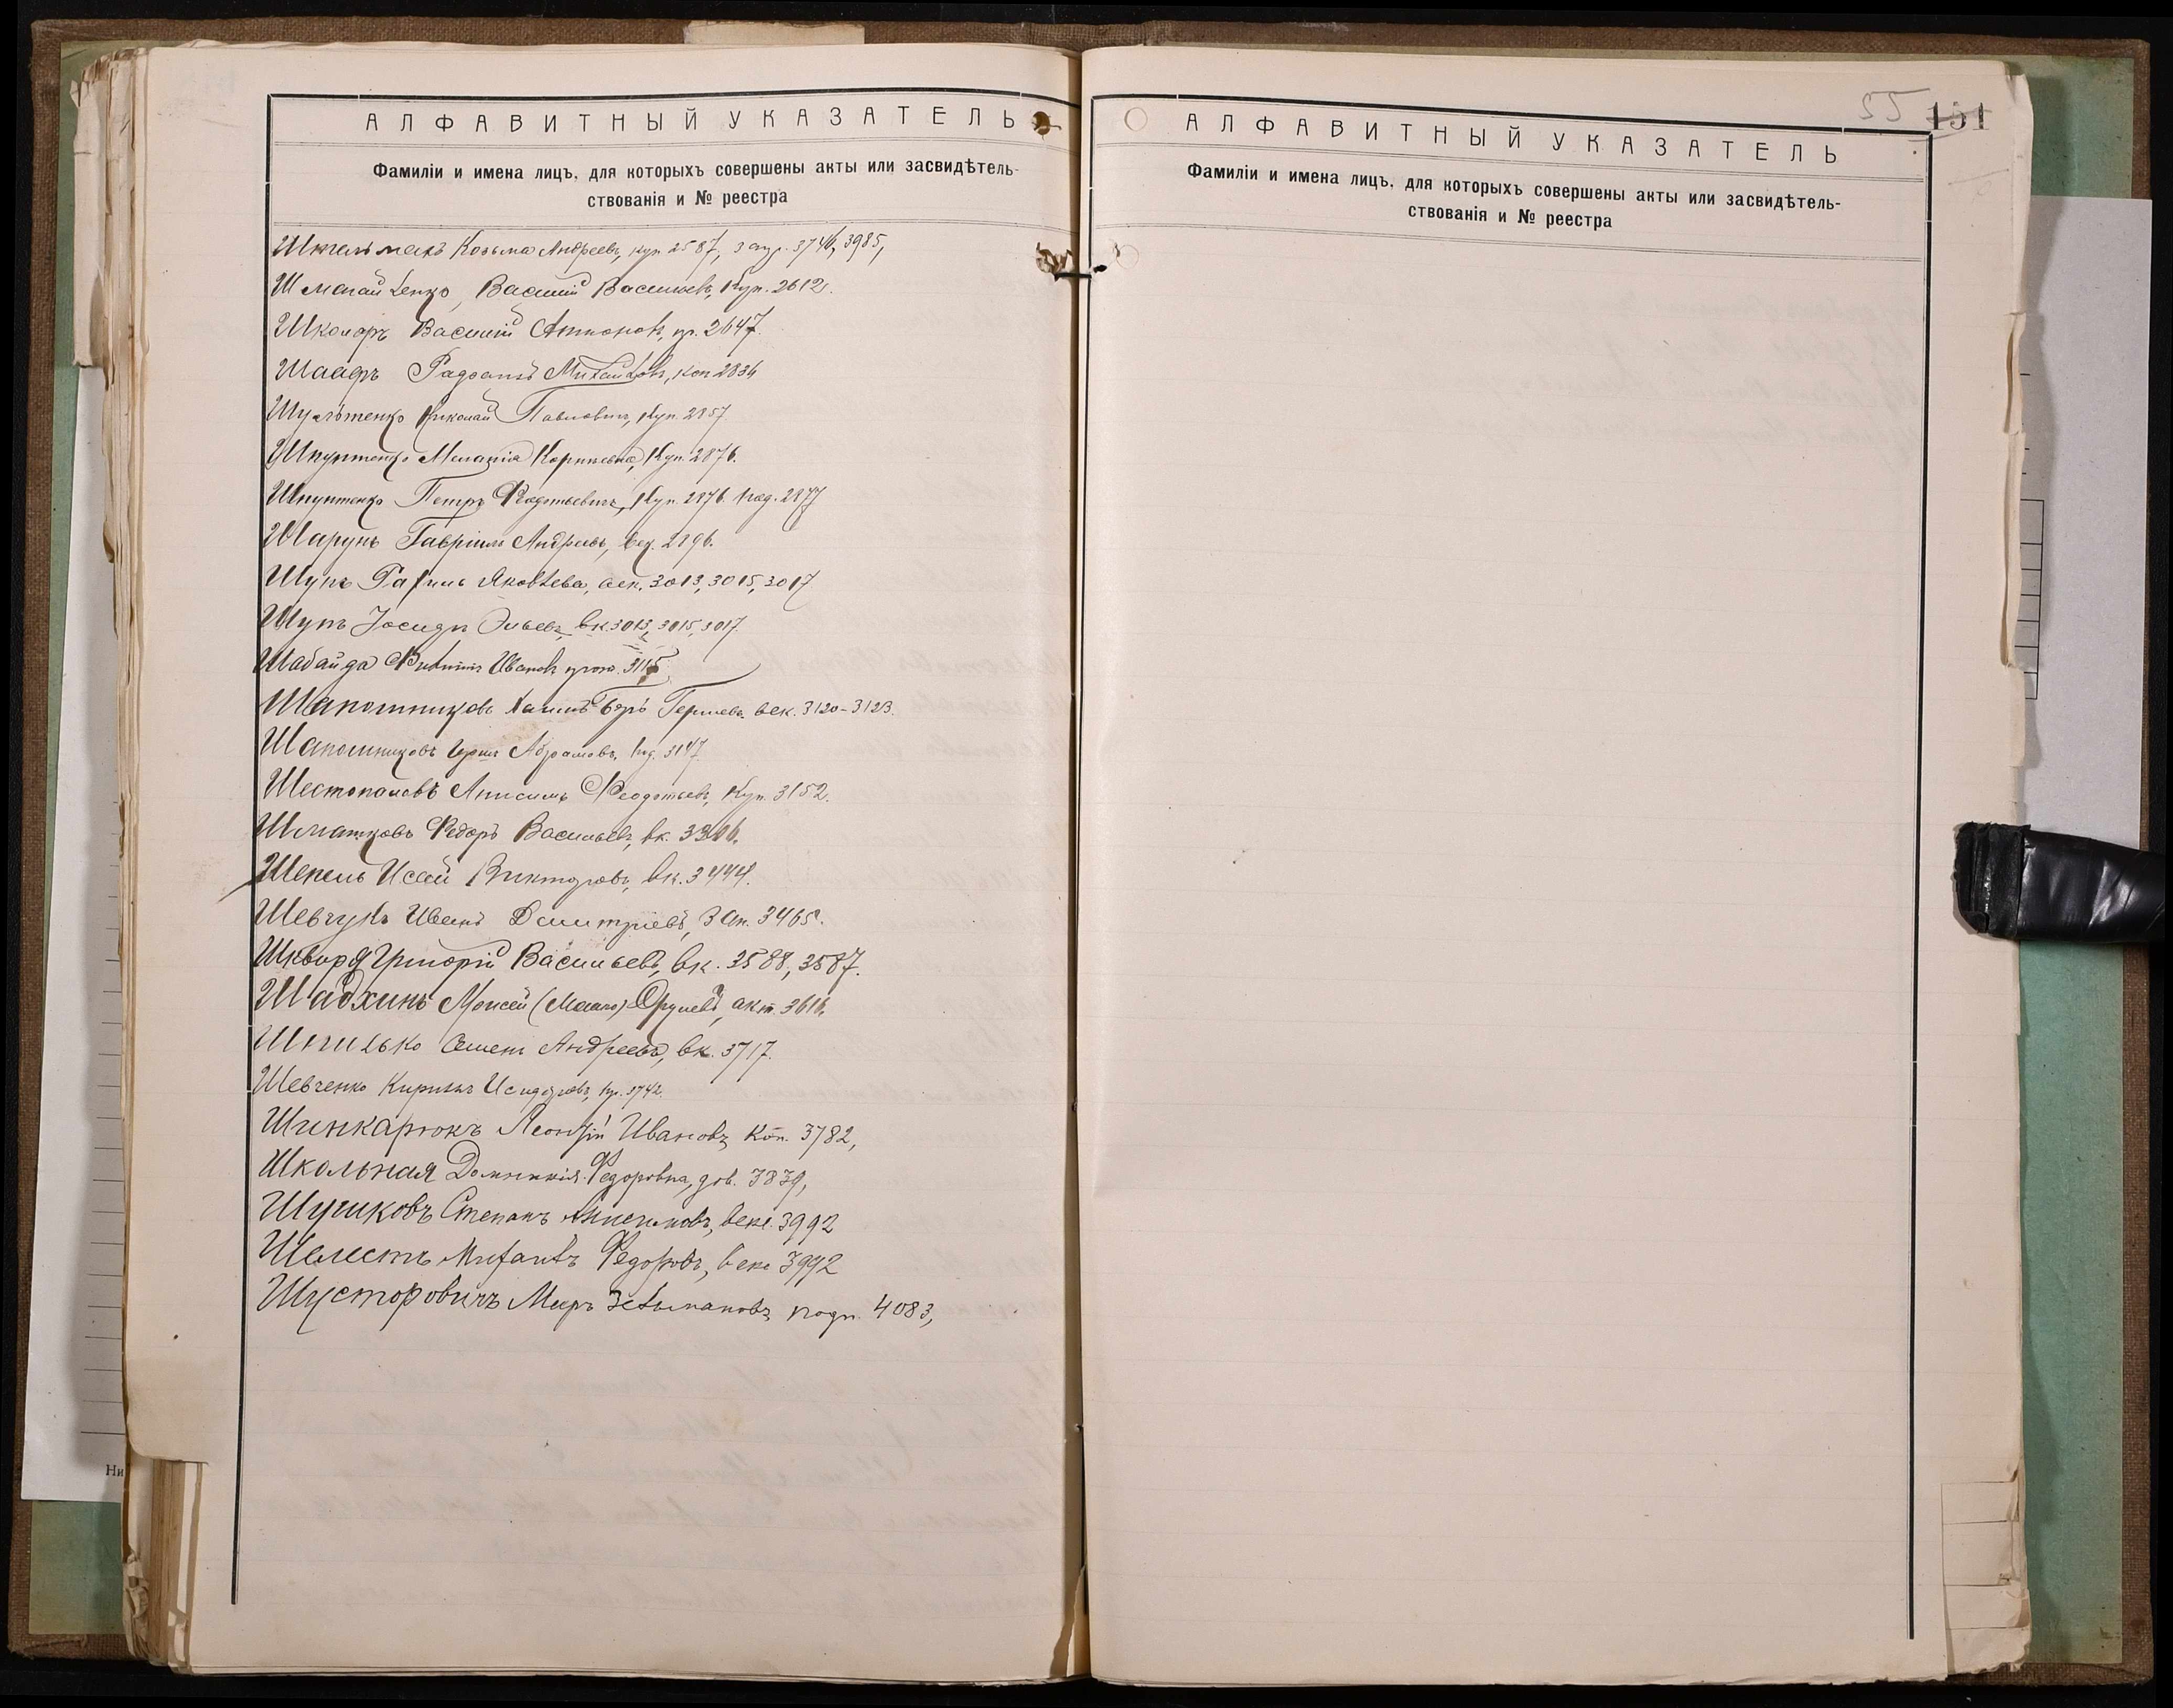 АЛФАВИТНЫЙ УКАЗАТЕЛЬ
Фамиліи и имена лицъ, для которыхъ совершены акты или засвидѣтель-
ствованія и № реестра
Козьма Андреевъ, куп 2587, 3985,
Василій Васильевъ, Куп. 2612.
Школяръ Василій Антоновъ, 2647.
Шаафъ Михайловъ, коп 2834
Николай Павловичъ, Куп. 2857
Шпунтенко Меланія Корнѣевна, Куп. 2876.
Шпунтенко Петръ Куп. 2876. 2877
Шарунъ Гавріилъ Андреевъ, век. 2896.
Шупъ Яковлева, век. 3013, 3015, 3017
Шупъ Іосифъ вк 3013, 3015, 3017.
Шабайда Филиппъ Ивановъ 3115
Шапошниковъ Беръ Гершевъ век. 3120-3123.
Шапошниковъ Абрамовъ, 3147
Шестопаловъ Анисимъ Феодотьевъ, Куп. 3152.
Шматковъ Федоръ Васильевъ, вк.
Шепель Исай Викторовъ, вк. 3444.
Шевчукъ Иванъ Дмитріевъ, 3465.
Григорій Васильевъ, вк. 3588, 3587.
Шадхинъ Моисей акт. 3616.
Шпилько Семенъ Андреевъ, вк. 3717.
Шевченко Кириллъ Исидоровъ, 3742.
Шинкарюкъ Леонтій Ивановъ, Коп. 3782,
Школьная Домникія Федоровна, дов. 3839,
Шушковъ Степанъ Анисимовъ, векс. 3992
Шелестъ Михаилъ Федоровъ, векс 3992
Шусторовичъ Мееръ подп. 4083,
55 131
АЛФАВИТНЫЙ УКАЗАТЕЛЬ
Фамиліи и имена лицъ, для которыхъ совершены акты или засвидѣтель-
ствованія и № реестра